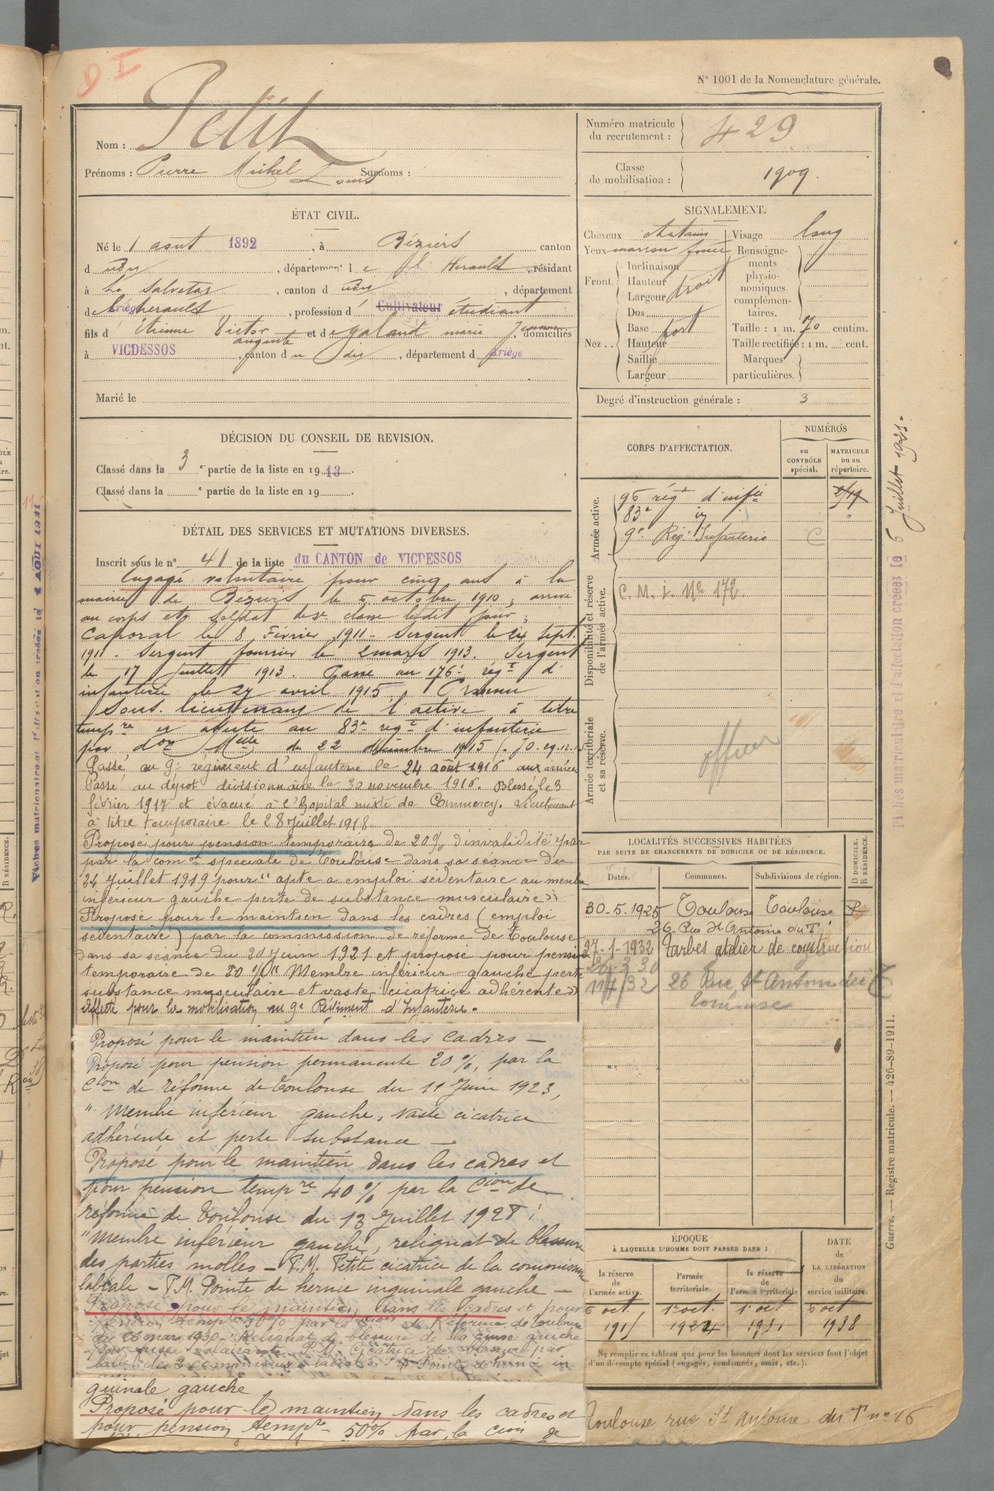 D I
N° 1001 de la Nomenclature générale.
Nom : Petit
Prénoms : Pierre Michel Louis Surnoms :
Numéro matricule du recrutement : 429
Classe de mobilisation : 1909.
ÉTAT CIVIL.
Né le 1 aout 1892, à Béziers canton
d udu, département de l' Herault, résidant
à La Salvetat, canton d udu, département
de l'herault, profession d Cultivateur étudiant
fils d Etienne Victor auguste et de galand marie, domiciliés
à VICDESSOS, canton d u du, département d Ariège
Marié le
SIGNALEMENT.
Cheveux chatains
Yeux marron foncé
Front. Inclinaison
Hauteur droit
Largeur
Nez. Dos
Base fort
Hauteur
Saillie
Largeur
Visage long
Renseignements physionomiques complémentaires.
Taille : 1 m. 70 centim.
Taille rectifiée : 1 m. cent.
Marques particulières.
Degré d'instruction générale : 3
DÉCISION DU CONSEIL DE REVISION.
Classé dans la 3e partie de la liste en 1913.
Classé dans la e partie de la liste en 19
DÉTAIL DES SERVICES ET MUTATIONS DIVERSES.
Inscrit sous le n° 41 de la liste du CANTON de VICDESSOS
Engagé volontaire pour cinq ans à la
mairie de Béziers le 5 octobre 1910, arrivé
au corps et soldat de 2e classe ledit jour,
Caporal le 8 Février 1911 - Sergent le 24 sept.
1911 - Sergent fourrier le 2 mars 1913. Sergent
le 17 Juillet 1913. Passé au 176e régt d'
infanterie le 27 avril 1915. Promu
Sous. lieutenant de l'active à titre
tempre et affecté au 83e régt d'infanterie
par don Melle du 22 décembre 1915
Passé au 9e régiment d'infanterie le 24 août 1916 aux armées
Passé au dépôt divisionnaire le 30 novembre 1916. Blessé le 3
février 1917 et évacué à l'hopital mixte de Commercy. Lieutenant
à titre temporaire le 28 Juillet 1918.
Proposé pour pension temporaire de 20% d'invalidité par
par la comon spéciale de Toulouse dans sa séance du
24 juillet 1919 pour "apte à emploi sédentaire au membre
inférieur gauche perte de substance musculaire"
Proposé pour le maintien dans les cadres (emploi
sédentaire) par la commission de réforme de Toulouse
dans sa séance du 20 Juin 1921 et proposé pour pension
temporaire de 20% "Membre inférieur gauche perte
substance musculaire et vaste cicatrice adhérente"
Affecté pour la mobilisation au 9e Régiment d'Infanterie.
Proposé pour le maintien dans les cadres -
Proposé pour pension permanente 20%, par la
Cion de réforme de Toulouse du 11 Juin 1923,
"Membre inférieur gauche, vaste cicatrice
adhérente et perte substance -
Proposé pour le maintien dans les cadres et
pour pension tempre 40% par la Cion de
réforme de Toulouse du 13 Juillet 1928 :
"Membre inférieur gauche, reliquat de blessure
des parties molles - P.M. Petite cicatrice de la commissure
labiale - P.M. Pointe de hernie inguinale gauche -
Proposé pour le maintien dans les cadres et pour
pension tempre 50% par la Cion de Réforme de Toulouse
du 26 mars 1930 - Reliquat de blessure de la jambe gauche
guinale gauche
Proposé pour le maintien dans les cadres et
pour pension tempre - 50% par la Cion de
CORPS D'AFFECTATION.
NUMÉROS
au CONTRÔLE spécial.
MATRICULE ou au répertoire.
Armée active.
96 régt d'inf.ie
83e id
9e Reg. Infanterie C
Disponibilité et réserve de l'armée active.
C.M.I. N° 172.
Armée territoriale et sa réserve.
officier
LOCALITÉS SUCCESSIVES HABITÉES
PAR SUITE DE CHANGEMENTS DE DOMICILE OU DE RÉSIDENCE.
Dates. Communes. Subdivisions de région. D DOMICILE. R RÉSIDENCE.
30.5.1925 Toulouse Toulouse
26 Rue St Antoine du T.
27-1-1932 Tarbes atelier de construction
11/7/32 26 Rue St Antoine du T
Toulouse
ÉPOQUE
À LAQUELLE L'HOMME DOIT PASSER DANS :
la réserve de l'armée active. l'armée territoriale. la réserve de l'armée territoriale.
DATE de LA LIBÉRATION du service militaire.
5 oct 1915
1er oct 1924
1er oct 1931
5 oct 1938
Ne remplir ce tableau que pour les hommes dont les services font l'objet
d'un décompte spécial (engagés, condamnés, omis, etc.).
Toulouse rue St Antoine du T n° 16
Fiches matriculaire et d'affectation créées le 6 Juillet 1933.
Guerre. — Registre matricule. — 426-89-1911.